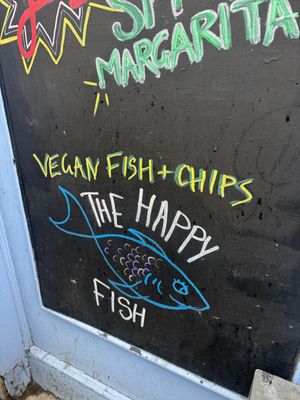 MARGARITA
VEGAN FISH + CHIPS
THE HAPPY
FISH